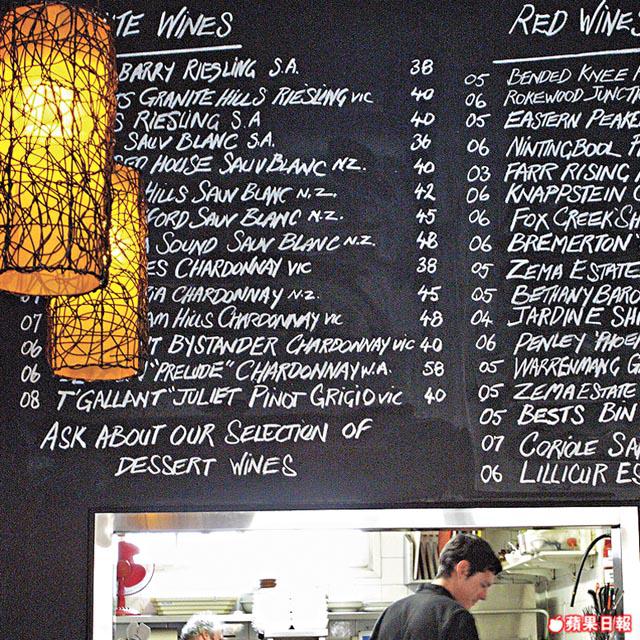 WINES
BARRY RIESLING S.A. 38
GRANITE HILLS RIESLING VIC 40
RIESLING S.A 40
SAUV BLANC S.A. 36
HOUSE SAUV BLANC N.Z. 40
HILLS SAUV BLANC N.Z. 42
SAUV BLANC N.Z. 45
SOUND SAUV BLANC N.Z. 48
CHARDONNAY VIC 38
CHARDONNAY N.Z. 45
07 HILLS CHARDONNAY VIC 48
06 BYSTANDER CHARDONNAY VIC 40
06 "PRELUDE" CHARDONNAY W.A. 58
08 T'GALLANT "JULIET PINOT GRIGIO VIC 40
ASK ABOUT OUR SELECTION OF
DESSERT WINES
RED WINES
05 BENDED KNEE
06 ROKEWOOD JUNCTION
05 EASTERN PEAKE
06 NINTINGBOOL
03 FARR RISING
06 KNAPPSTEIN
06 FOX CREEK SH
06 BREMERTON
05 ZEMA ESTATE
05 BETHANY BARO
04 JARDINE SHI
06 PENLEY "PHOE
05 WARRENMANG G
05 ZEMA ESTATE
05 BESTS BIN
07 CORIOLE SA
06 LILLICUR ES
蘋果日報